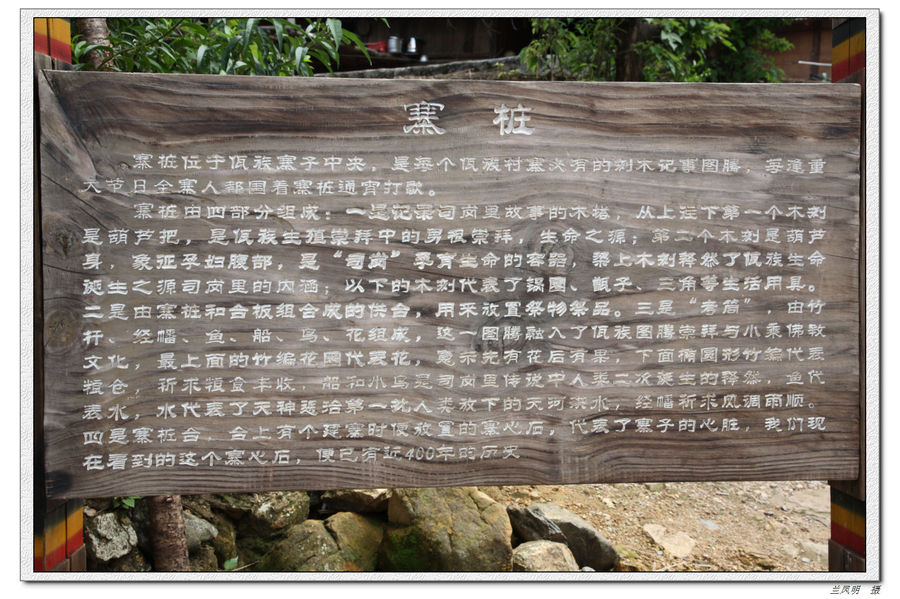 寨桩
寨桩位于佤族寨子中央。是每个佤族村寨必有的刻木记事图腾，每逢重
大节日全寨人都围着寨桩通宵打歌。
寨桩由四部分组成：一是记录司岗里故事的木塔，从上往下第一个木刻
是葫芦把，是佤族生殖崇拜中的男根崇拜，生命之源；第二个木刻是葫芦
身，象征孕妇腹部，是“司岗”孕育生命的容器，梁上木刻释然了佤族生命
诞生之源司岗里的内涵；以下的木刻代表了锅圈、甑子、三角等生活用具。
二是由寨桩和合板组合成的供台，用来放置祭物祭品。三是“考筒”，由竹
杆、经幡、鱼、船、鸟、花组成，这一图腾融入了佤族图腾崇拜与小乘佛教
文化，最上面的竹编花圈代表花，意示先有花后有果，下面椭圆形竹编代表
粮仓，祈求粮食丰收，船和小鸟是司岗里传说中人类二次诞生的释然，鱼代
表水，水代表了天神惩治第一批人类放下的天河洪水，经幡祈求风调雨顺。
四是寨桩台，台上有个建寨时便放置的寨心后，代表了寨子的心脏，我们现
在看到的这个寨心后，便已有近400年的历史
兰凤明 摄